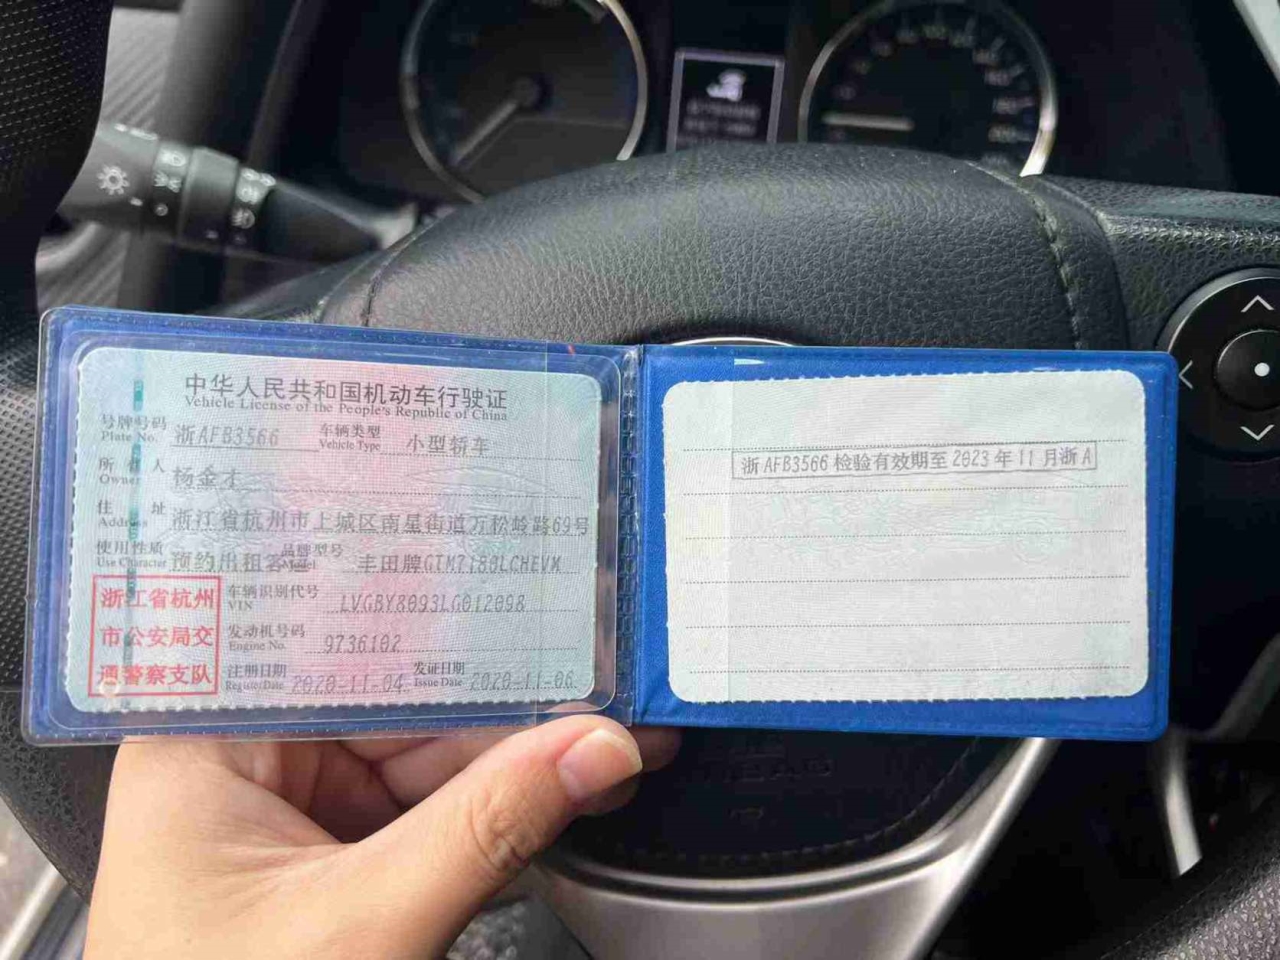 中华人民共和国机动车行驶证
Vehicle License of the People's Republic of China
号牌号码 浙AFB3566 车辆类型 小型轿车
Plate No. Vehicle Type
所有人 杨金才
Owner
住址 浙江省杭州市上城区南星街道万松岭路69号
Address
使用性质 预约出租客 品牌型号 丰田牌GTM7180LCHEVM
Use Character Model
浙江省杭州
市公安局交
通警察支队
车辆识别代号 LVGBY8093LG012098
VIN
发动机号码 9736102
Engine No.
注册日期 2020-11-04 发证日期 2020-11-06
Register Date Issue Date
浙AFB3566 检验有效期至 2023 年 11 月浙 A